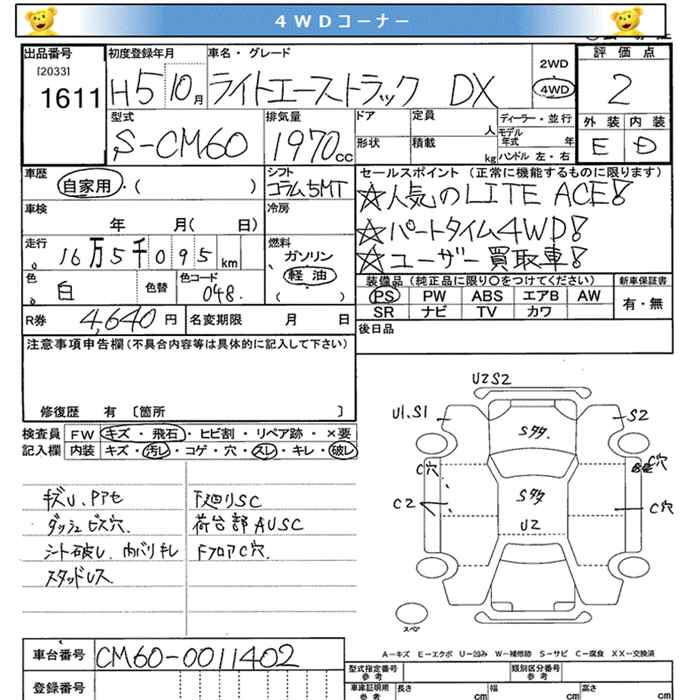 4WDコーナー
出品番号 初度登録年月 車名・グレード 評価点
[2033]
1611 H5 10月 ライトエーストラック DX 2WD 4WD 2
型式 排気量 ドア 定員 ディーラー・並行 外装 内装
S-CM60 1970cc 人 モデル年式 年 E D
形状 積載 kg ハンドル 左・右
車歴 シフト セールスポイント(正常に機能するものに限ります)
自家用・( ) コラム5MT ☆人気のLITE ACE!
車検 冷房 ☆パートタイム4WD!
年 月( 日) ☆ユーザー買取車!
走行 燃料
16万5千095km ガソリン
軽油
( )
色 色替 色コード 装備品(純正品に限り○をつけてください) 新車保証書
白 048. PS PW ABS エアB AW 有・無
SR ナビ TV カワ
R券 4,640円 名変期限 月 日 後日品
注意事項申告欄(不具合内容等は具体的に記入して下さい)
修復歴 有〔箇所 〕
検査員 FW キズ・飛石・ヒビ割・リペア跡・×要
記入欄 内装 キズ・汚レ・コゲ・穴・スレ・キレ・破レ
キズU、Pアセ
ダッシュビス穴
シート破レ、内バリキレ
スタッドレス
下廻リSC
荷台部AUSC
FフロアC穴
U2S2
U1.S1
S2
Sタタ.
C穴
C穴
C2
Sタタ
U2
C穴
スペア
A-キズ E-エクボ U-凹み W-補修跡 S-サビ C-腐食 XX-交換済
車台番号 CM60-0011402
登録番号
型式指定番号 参考 類別区分番号 参考
車庫証明用 参考 長さ cm 幅 cm 高さ cm